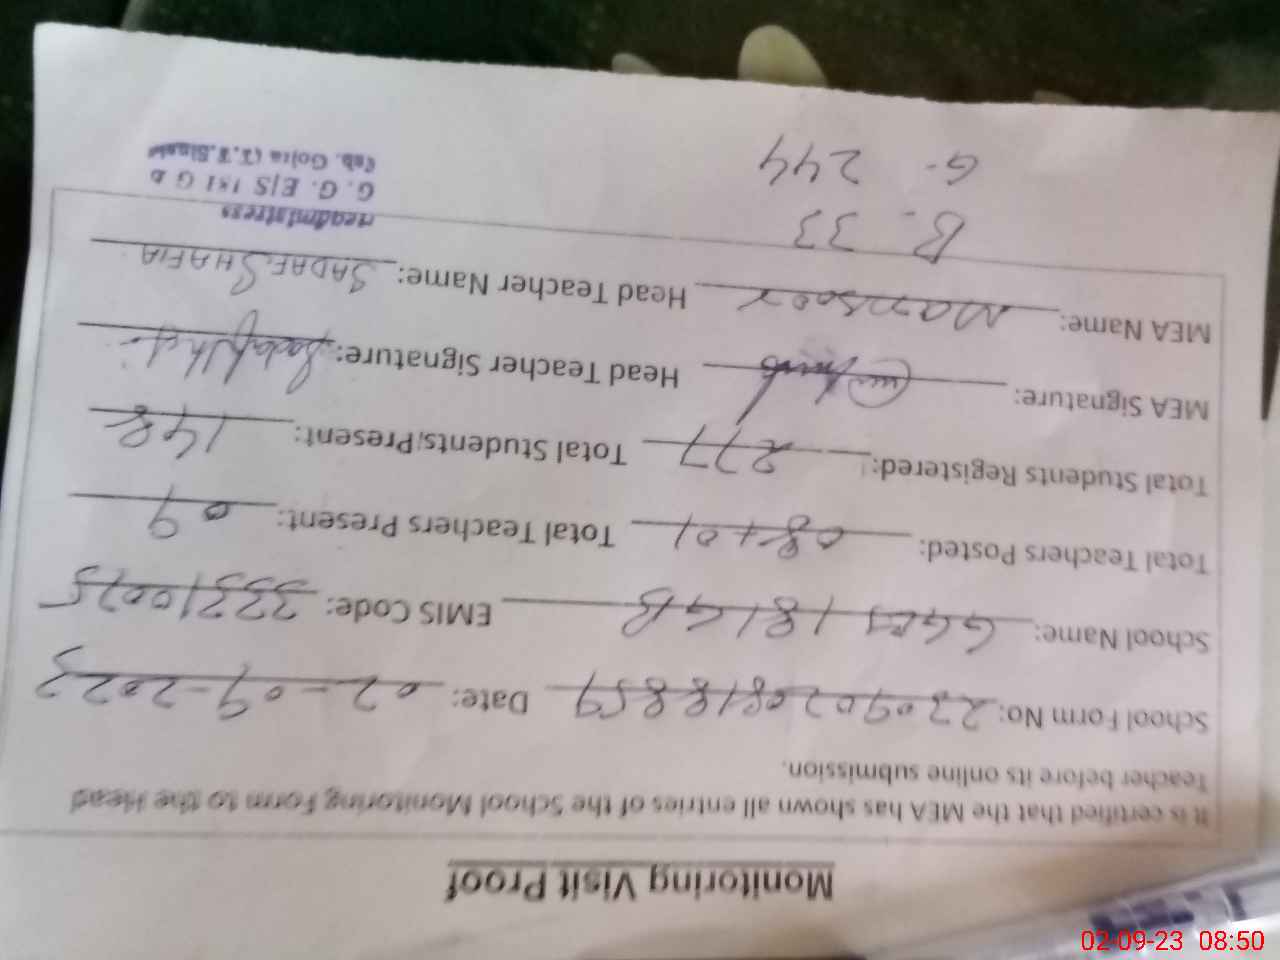 Monitoring Visit Proof
It is certified that the MEA has shown all entries of the School Monitoring Form to the Head
Teacher before its online submission.
School Form No: 2309020818859 Date: 02-09-2023
School Name: GGES 181 GB EMIS Code: 33310075
Total Teachers Posted: 08+01 Total Teachers Present: 09
Total Students Registered: 277 Total Students Present: 148
MEA Signature: Head Teacher Signature:
MEA Name: Mansoor Head Teacher Name: SADAF SHAFIA
B. 33
G. 244
Headmistress
G. G. E/S 181 G B
Teh. Gojra (T.T.Singh)
02-09-23 08:50